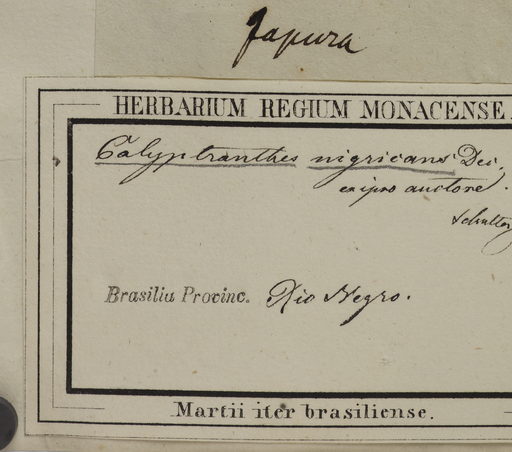 Japura
HERBARIUM REGIUM MONACENSE.
Calyptranthes nigricans Dec.
ex ipso auctore.
Brasilia Provinc. Rio Negro.
Martii iter brasiliense.